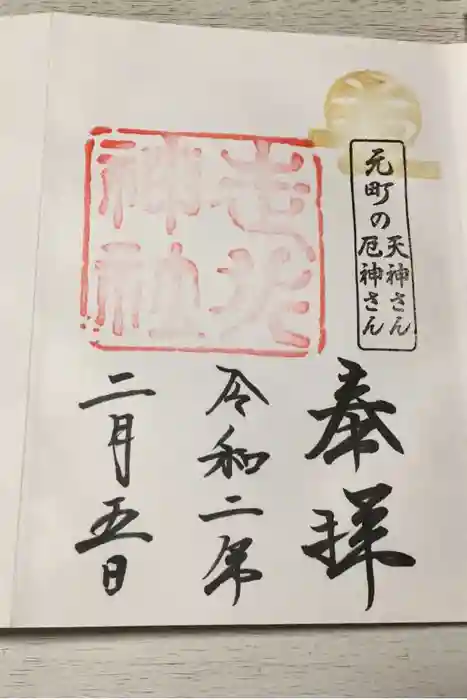 元町の
天神さん
厄神さん
走水
神社
奉拝
令和二年
二月五日